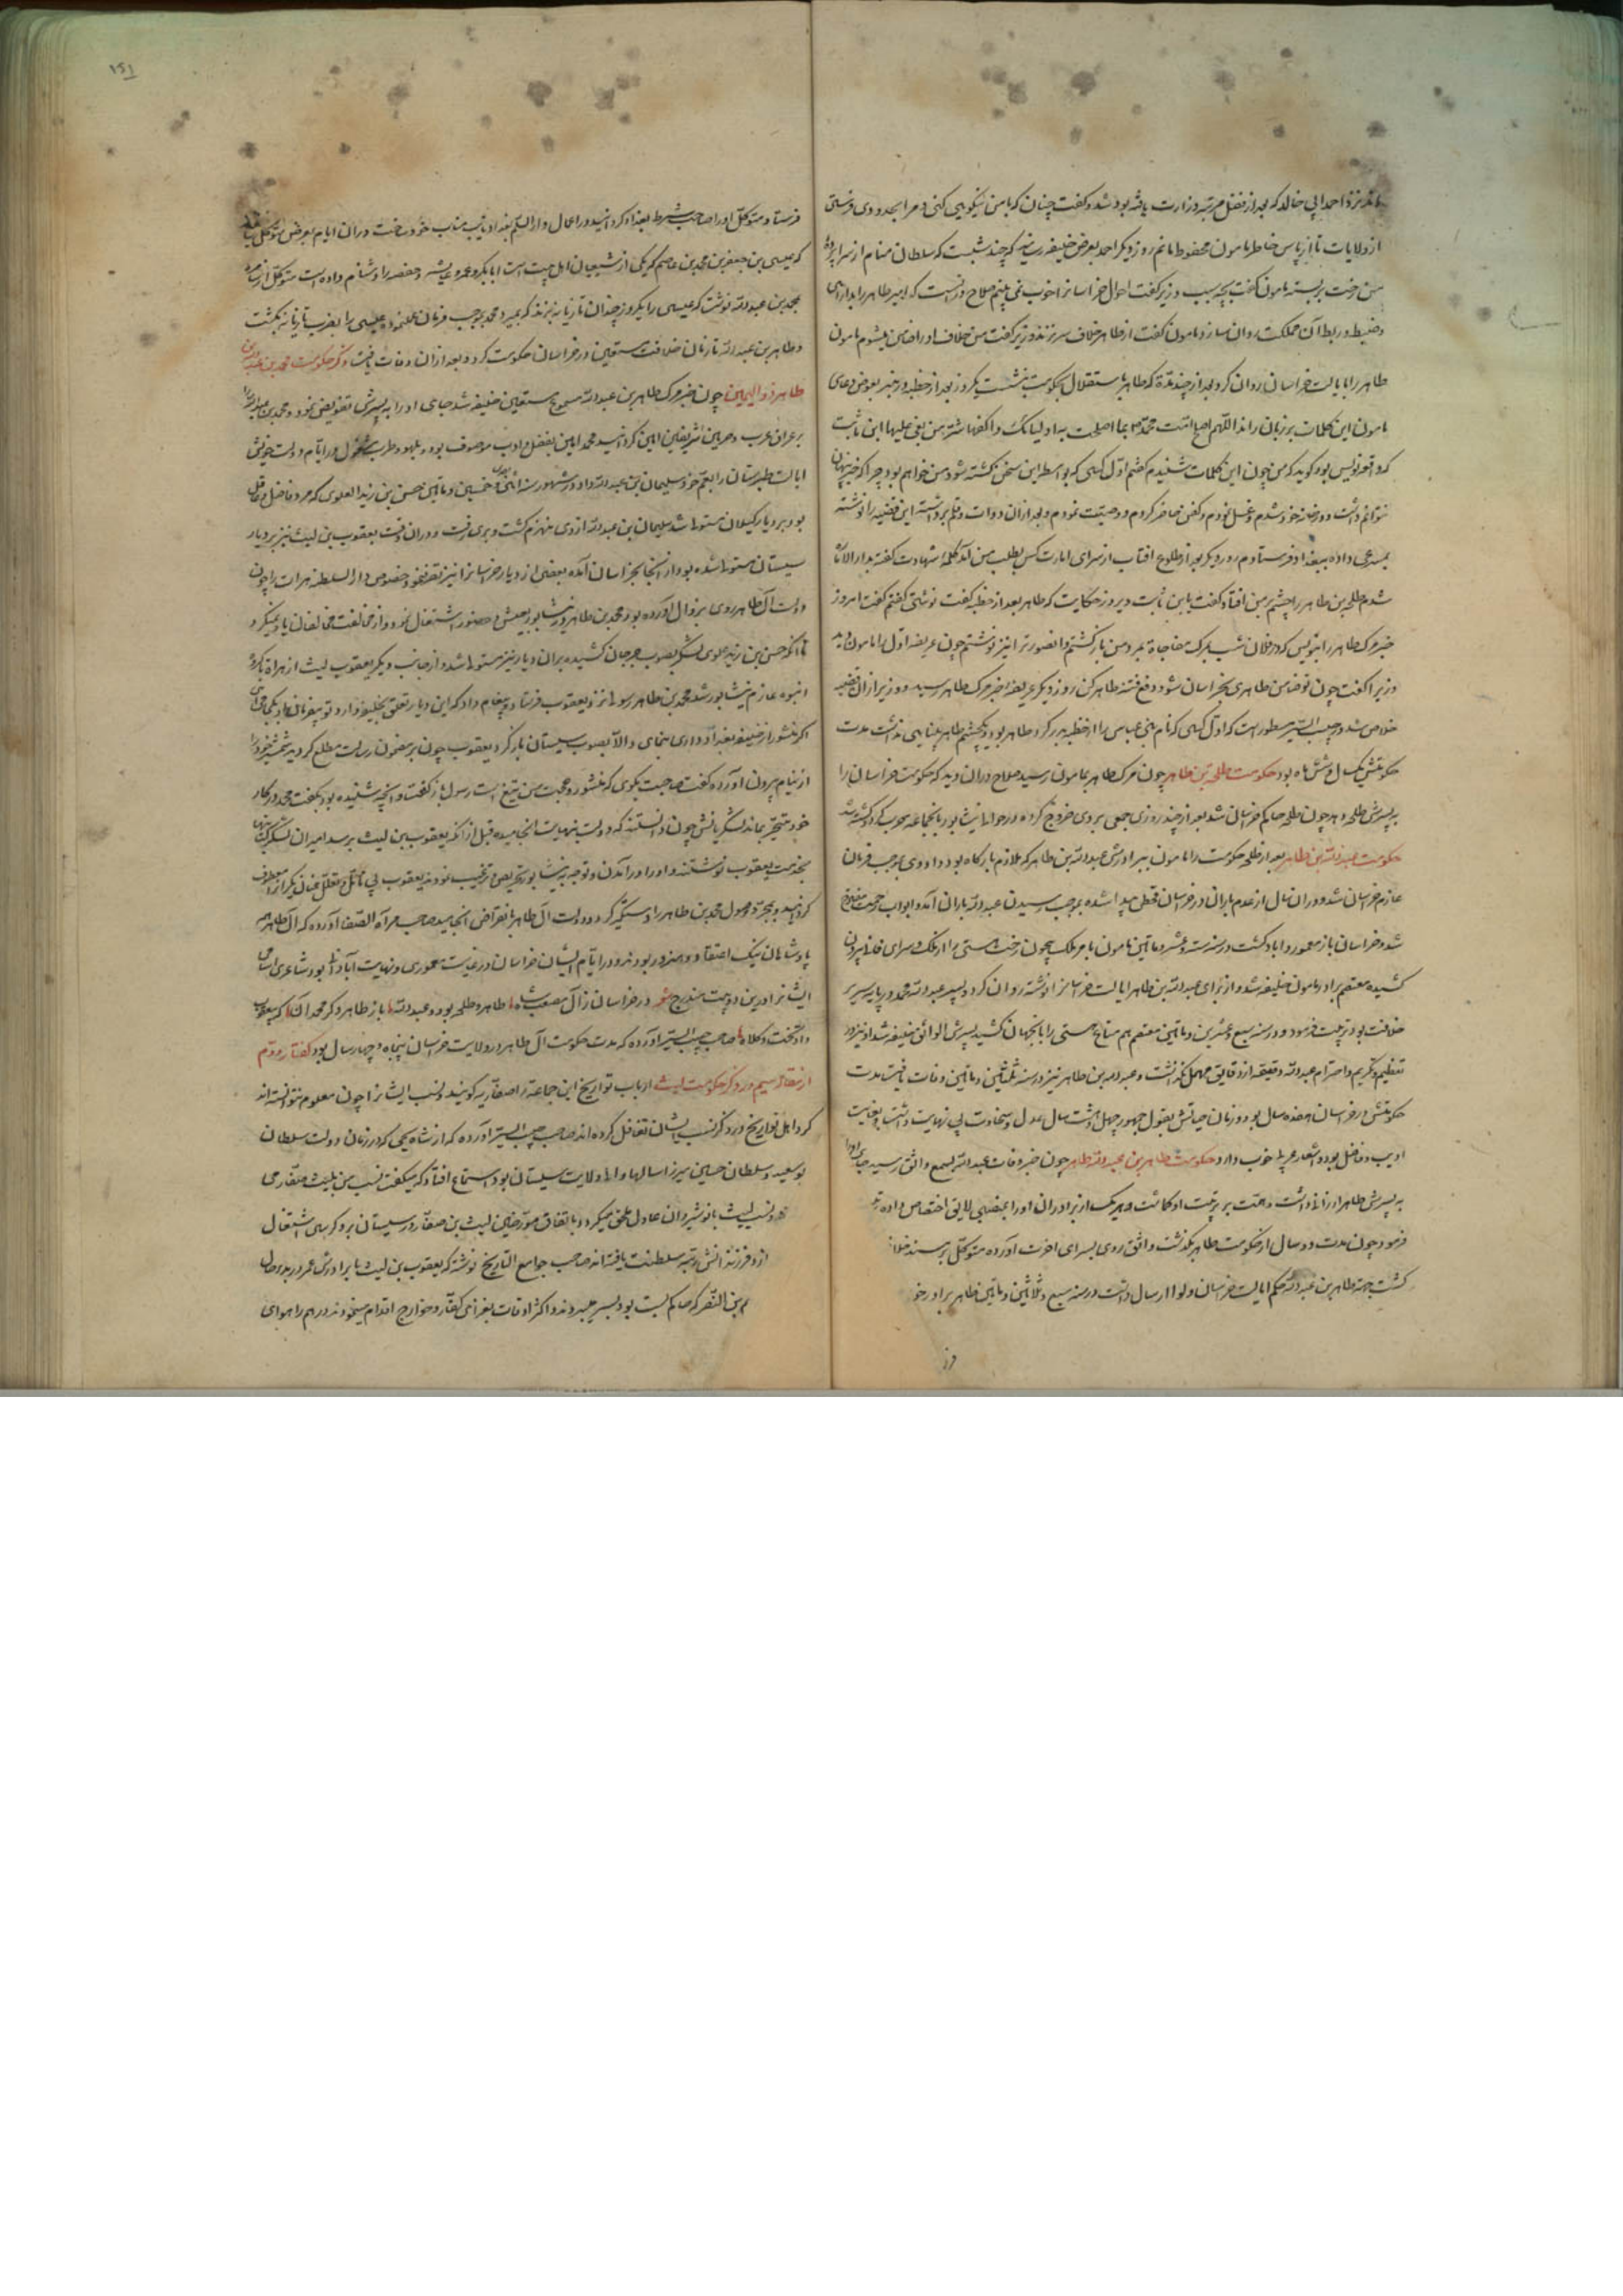 نزد احمد ابی خالد که بعد از فضل مرتبه وزارت یافته بود شد و گفت چنان کن که با من نیکویی کنی و مرا بحدودی فرستی
از ولایات تا از پاس خاطر مامون محفوظ مانم روز دیگر احمد بعرض خلیفه رسانید که چند شبست که سلطان منام از سراپرده
من رخت بربسته مامون گفت بچه سبب وزیر گفت احوال خراسانرا خوب نمی بینم صلاح در آنست که امیر طاهر را بدارای
و ضبط و ربط آن مملکت روان سازد مامون گفت از طاهر خلاف سر زند وزیر گفت من خلاف او را ضامن میشوم مامون
طاهر را بایالت خراسان روان کرد بعد از چند مدة که طاهر باستقلال بحکومت بنشست یکروز بعد از خطبه در منبر بعوض دعای
مامون این کلمات بر زبان راند اللهم اصلح امت محمد بما اصلحت به اولیائک و اکفها شر من بغی علیها ابن ثابت
که وقعه نویس بود گوید که من چون این کلمات شنیدم گفتم اول کسی که بواسطه این سخن کشته شود من خواهم بود چرا که خبر پنهان
نتوانم داشت و در خانه خود شدم و غسل نمودم و کفن حاضر کردم و وصیت نمودم و بعد از آن دوات و قلم برداشته این قضیه را نوشته
بمسرعی داده ببغداد فرستادم روز دیگر بعد از طلوع افتاب از سرای امارت کس بطلب من آمد کلمه شهادت گفته بدار الامارة
شدم طلحه بن طاهر را چشم بر من افتاد گفت یا بن ثابت دیروز حکایت که طاهر بعد از خطبه گفت نوشتی گفتم گفت امروز
خبر مرک طاهر را بنویس که در فلان شب بمرک مفاجاة بمرد من بازگشتم و انصورترا نیز نوشتم چون عریضه اول را مامون دید
وزیر را گفت چون تو ضامن طاهری بخراسان شو و دفع فتنه طاهر کن روز دیگر عریضه خبر مرک طاهر رسید و وزیر از ان قضیه
خلاص شد در حبیب السیر مسطور است که اول کسی که نام بنی عباس را از خطبه بدر کرد طاهر بود و یکچشم طاهر بینایی نداشت مدت
حکومتش یکسال و شش ماه بود حکومت طلحه بن طاهر چون مرک طاهر بمامون رسید صلاح در ان دید که حکومت خراسان را
به پسرش طلحه دهد چون طلحه حاکم خراسان شد بعد از چند روزی جمعی بروی خروج کرده در حوالی نیشابور بانجماعه حرب کرد و کشته شد
حکومت عبدالله بن طاهر بعد از طلحه حکومت را مامون ببرادرش عبدالله بن طاهر که ملازم بارگاه بود داد وی بموجب فرمان
عازم خراسان شد و در ان سال از عدم باران در خراسان قحطی پیدا شده بموجب رسیدن عبدالله باران آمد و ابواب رحمت مفتوح
شد و خراسان باز معمور و اباد گشت در سنه ست و عشر و مأتین مامون بامر ملک بیچون رخت هستی را از تنگ سرای فانی بیرون
کشیده معتصم برادر مامون خلیفه شد و از برای عبدالله بن طاهر ایالت خراسانرا نوشته روان کرد و پسر عبدالله محمد در پایه سریر
خلافت بود تربیت فرمود و در سنه سبع و عشرین و مأتین معتصم هم متاع هستی را بانجهان کشید پسرش الواثق خلیفه شد او نیز در
تعظیم و تکریم و احترام عبدالله دقیقه از دقایق مهمل نگذاشت و عبدالله بن طاهر نیز در سنه ثلثین و مأتین وفات یافت مدت
حکومتش در خراسان هفده سال بود و زمان حیاتش بقول جمهور چهل و هشت سال عدل و سخاوت بی نهایت داشت و بغایت
ادیب و فاضل بود و اشعار عربی خوب دارد حکومت طاهر بن عبدالله طاهر چون خبر وفات عبدالله بسمع واثق رسید جای او را
به پسرش طاهر ارزانی داشت و همت بر تربیت او گماشت و هر یک از برادران او را بمنصبی لایق اختصاص داده
فرمود چون مدت دو سال از حکومت طاهر بگذشت واثق روی بسرای اخرت آورده متوکل بر مسند خلا
گشت بجهة طاهر بن عبدالله حکم ایالت خراسان و لوا ارسال داشت در سنه سبع و ثلاثین و مأتین طاهر برادر خو
فرستاد و متوکل او را صاحب شرط بغداد گردانید و در اعمال دار السلام بغداد نایب مناب خود ساخت در ان ایام بعرض متوکل
که عیسی بن جعفر بن محمد بن عاصم که یکی از شیعیان اهل بیت است ابابکر و عمر و عایشه و حفصه را دشنام داده است متوکل
بمحمد بن عبدالله نوشت که عیسی را یکروز چندان تازیانه بزنند که بمیرد محمد بموجب فرمان عیسی را بضرب تازیانه بکشت
و طاهر بن عبدالله تا زمان خلافت مستعین در خراسان حکومت کرد و بعد از ان وفات یافت ذکر حکومت محمد بن
طاهر ذو الیمینین چون خبر مرک طاهر بن عبدالله مسموع مستعین خلیفه شد جای او را به پسرش تفویض نمود و محمد بن عبدالله را
بر عراق عرب و حرمین شریفین امین گردانید محمد امین بفضل و ادب موصوف بود و بلهو و طرب مشغول در ایام دولت خویش
ایالت طبرستان را بعم خود سلیمان بن عبدالله داد و در شهور سنه اثنی و خمسین و مأتین حسن بن زید العلوی که مرد فاضل
بود بر دیار گیلان مستولی شد سلیمان بن عبدالله از وی منهزم گشت و بری رفت و در ان وقت یعقوب بن لیث نیز بر دیار
سیستان مستولی شده بود از انجا بخراسان آمده بعضی از دیار خراسانرا نیز تصرف نمود خصوص دار السلطنه هرات را چون
دولت آل طاهر روی بزوال اورده بود محمد بن طاهر در نیشابور بعیش و حضور اشتغال نمود و از مخالفت مخالفان یاد نمیکرد
تا آنکه حسن بن زید علوی لشکر بصوب جرجان کشیده بران دیار نیز مستولی شد و از جانب دیگر یعقوب لیث از هراة
انبوه عازم نیشابور شد محمد بن طاهر رسولی نزد یعقوب فرستاد و پیغام داد که این دیار تعلق بخلیفه دارد تو بفرمان که
اگر منشور از خلیفه بغداد داری بنمای و الا بصوب سیستان بازگرد یعقوب چون بر مضمون رسالت مطلع گردید شمشیر خود را
از نیام بیرون آورده گفت صاحبت بگوی که منشور و حجت من تیغ است رسول باز گشت و انچه شنیده بود بگفت محمد در کار
خود متحیر بماند لشکریانش چون دانستند که دولت بنهایت انجامیده قبل از انکه یعقوب بن لیث برسد امیران لشکر
بخدمت یعقوب نوشتند و او را در آمدن و توجه به نیشابور تحریص و ترغیب نمودند یعقوب بی تامل و تعلل عنان
گردانید و بمجرد وصول محمد بن طاهر را دستگیر کرد و دولت آل طاهر بانقراض انجامید صاحب مرآة الصفا آورده که آل طاهر
پادشاهان نیک اعتقاد و هنرور بودند و در ایام ایشان خراسان در غایت معموری و نهایت آبادانی بود شاعری اسامی
ایشانرا در این دو بیت مندرج در خراسان ز آل مصعب شاه طاهر و طلحه بود و عبدالله باز طاهر و دگر محمد آن که بیعقوب
داد تخت و کلاه صاحب حبیب السیر آورده که مدت حکومت آل طاهر در ولایت خراسان پنجاه و چهار سال بود گفتار دوم
از مقاله سیم در ذکر حکومت لیث ارباب تواریخ این جماعة را صفاریه گویند و نسب ایشانرا چون معلوم نتوانسته اند
کرد اهل تواریخ در ذکر نسب ایشان تغافل کرده اند صاحب حبیب السیر آورده که از شاه یحیی که در زمان دولت سلطان
بوسعید و سلطان حسین میرزا سالها والی ولایت سیستان بود استماع افتاد که میگفت نسب من بلیث صفار می
و نسب لیث بانوشیروان عادل ملحق میکرد و باتفاق مورخین لیث بن صفار در سیستان برویگری اشتغال
از و فرزندانش رتبه سلطنت یافته اند صاحب جوامع التاریخ نوشته که یعقوب بن لیث با برادرش عمرو
بن النصر که حاکم بست بود بسر میبردند و اکثر اوقات بغزای کفار و خوارج اقدام مینمودند درهم را هوای